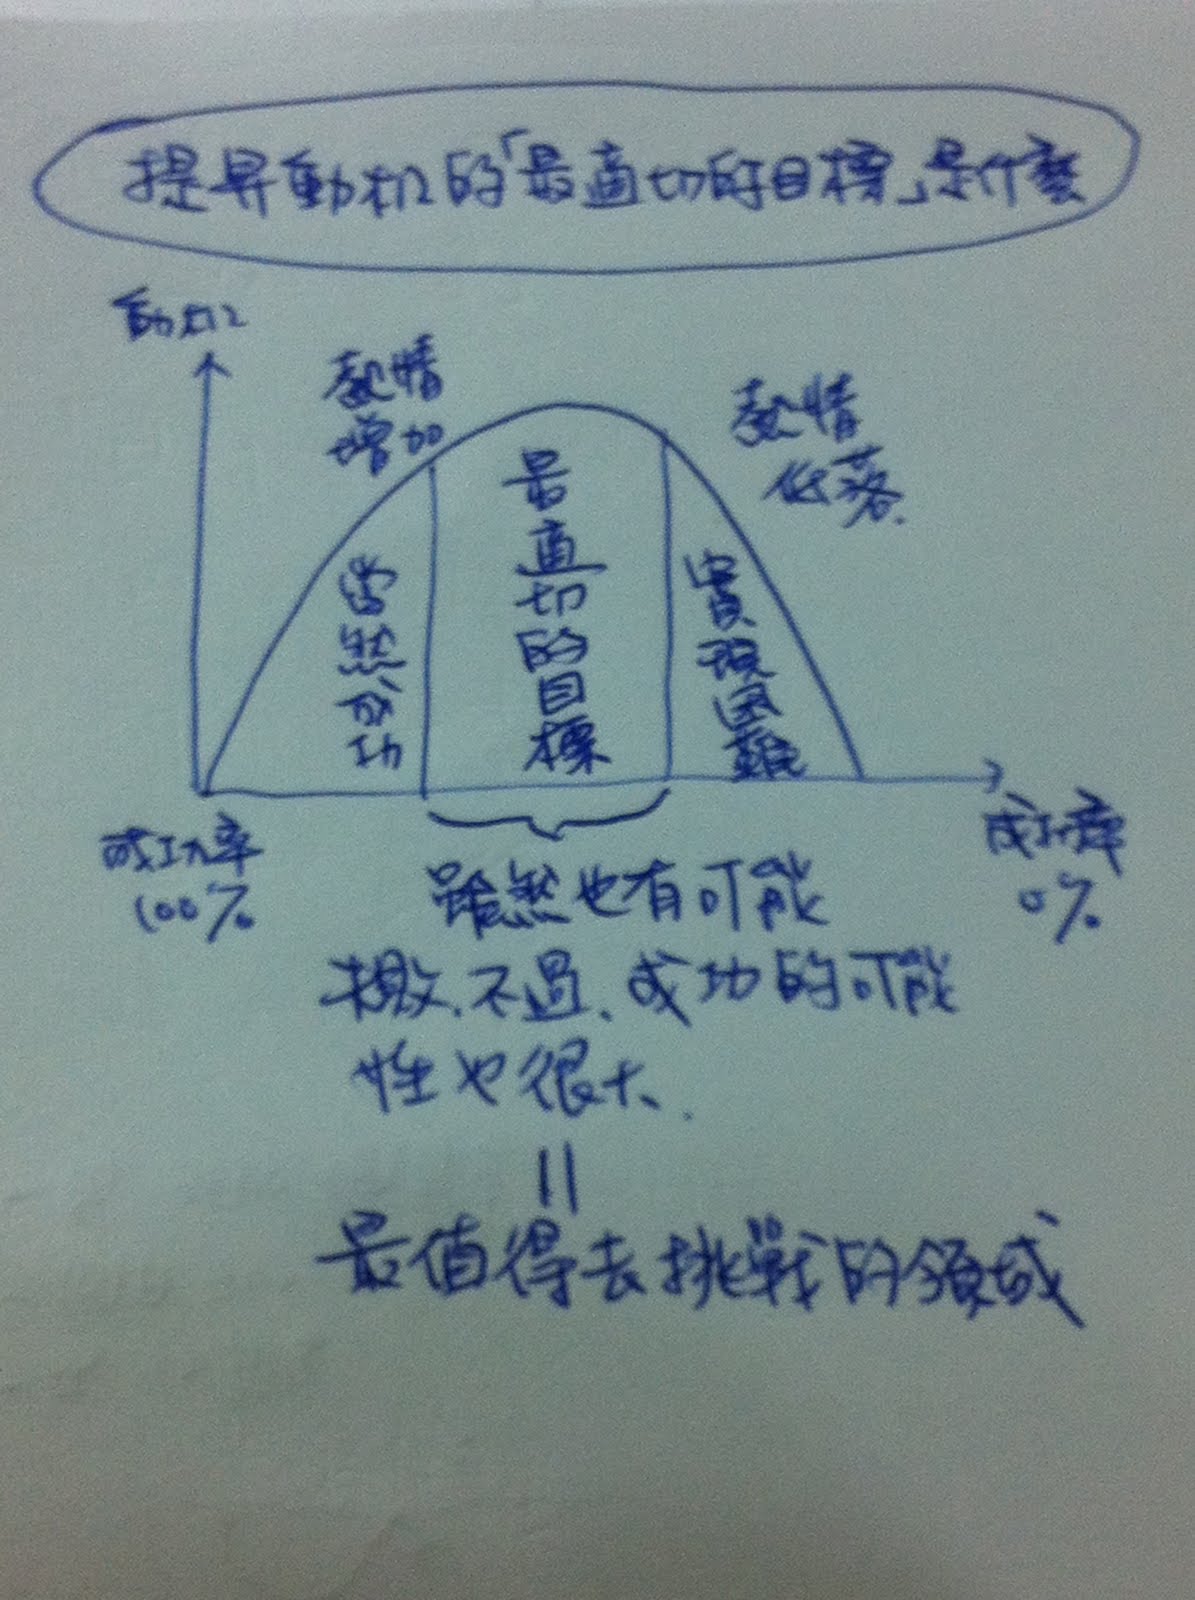 提昇動机的「最適切的目標」是什麼
動机
熱情
增加
熱情
低落.
當然成功
最適切的目標
實現困難
成功率
100%
成功率
0%
雖然也有可能
敗.不過.成功的可能
性也很大.
=
最值得去挑戰的領域